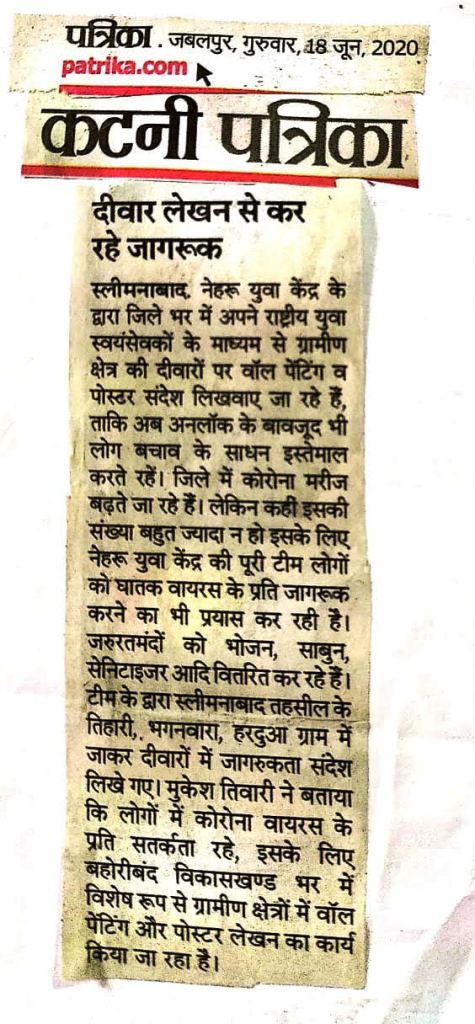 पत्रिका . जबलपुर, गुरुवार, 18 जून, 2020
patrika.com
कटनी पत्रिका
दीवार लेखन से कर
रहे जागरूक
स्लीमनाबाद. नेहरू युवा केंद्र के
द्वारा जिले भर में अपने राष्ट्रीय युवा
स्वयंसेवकों के माध्यम से ग्रामीण
क्षेत्र की दीवारों पर वॉल पेंटिंग व
पोस्टर संदेश लिखवाए जा रहे हैं,
ताकि अब अनलॉक के बावजूद भी
लोग बचाव के साधन इस्तेमाल
करते रहें। जिले में कोरोना मरीज
बढ़ते जा रहे हैं। लेकिन कहीं इसकी
संख्या बहुत ज्यादा न हो इसके लिए
नेहरू युवा केंद्र की पूरी टीम लोगों
को घातक वायरस के प्रति जागरूक
करने का भी प्रयास कर रही है।
जरुरतमंदों को भोजन, साबुन,
सेनिटाइजर आदि वितरित कर रहे हैं।
टीम के द्वारा स्लीमनाबाद तहसील के
तिहारी, भगनवारा, हरदुआ ग्राम में
जाकर दीवारों में जागरुकता संदेश
लिखे गए। मुकेश तिवारी ने बताया
कि लोगों में कोरोना वायरस के
प्रति सतर्कता रहे, इसके लिए
बहोरीबंद विकासखण्ड भर में
विशेष रूप से ग्रामीण क्षेत्रों में वॉल
पेंटिंग और पोस्टर लेखन का कार्य
किया जा रहा है।